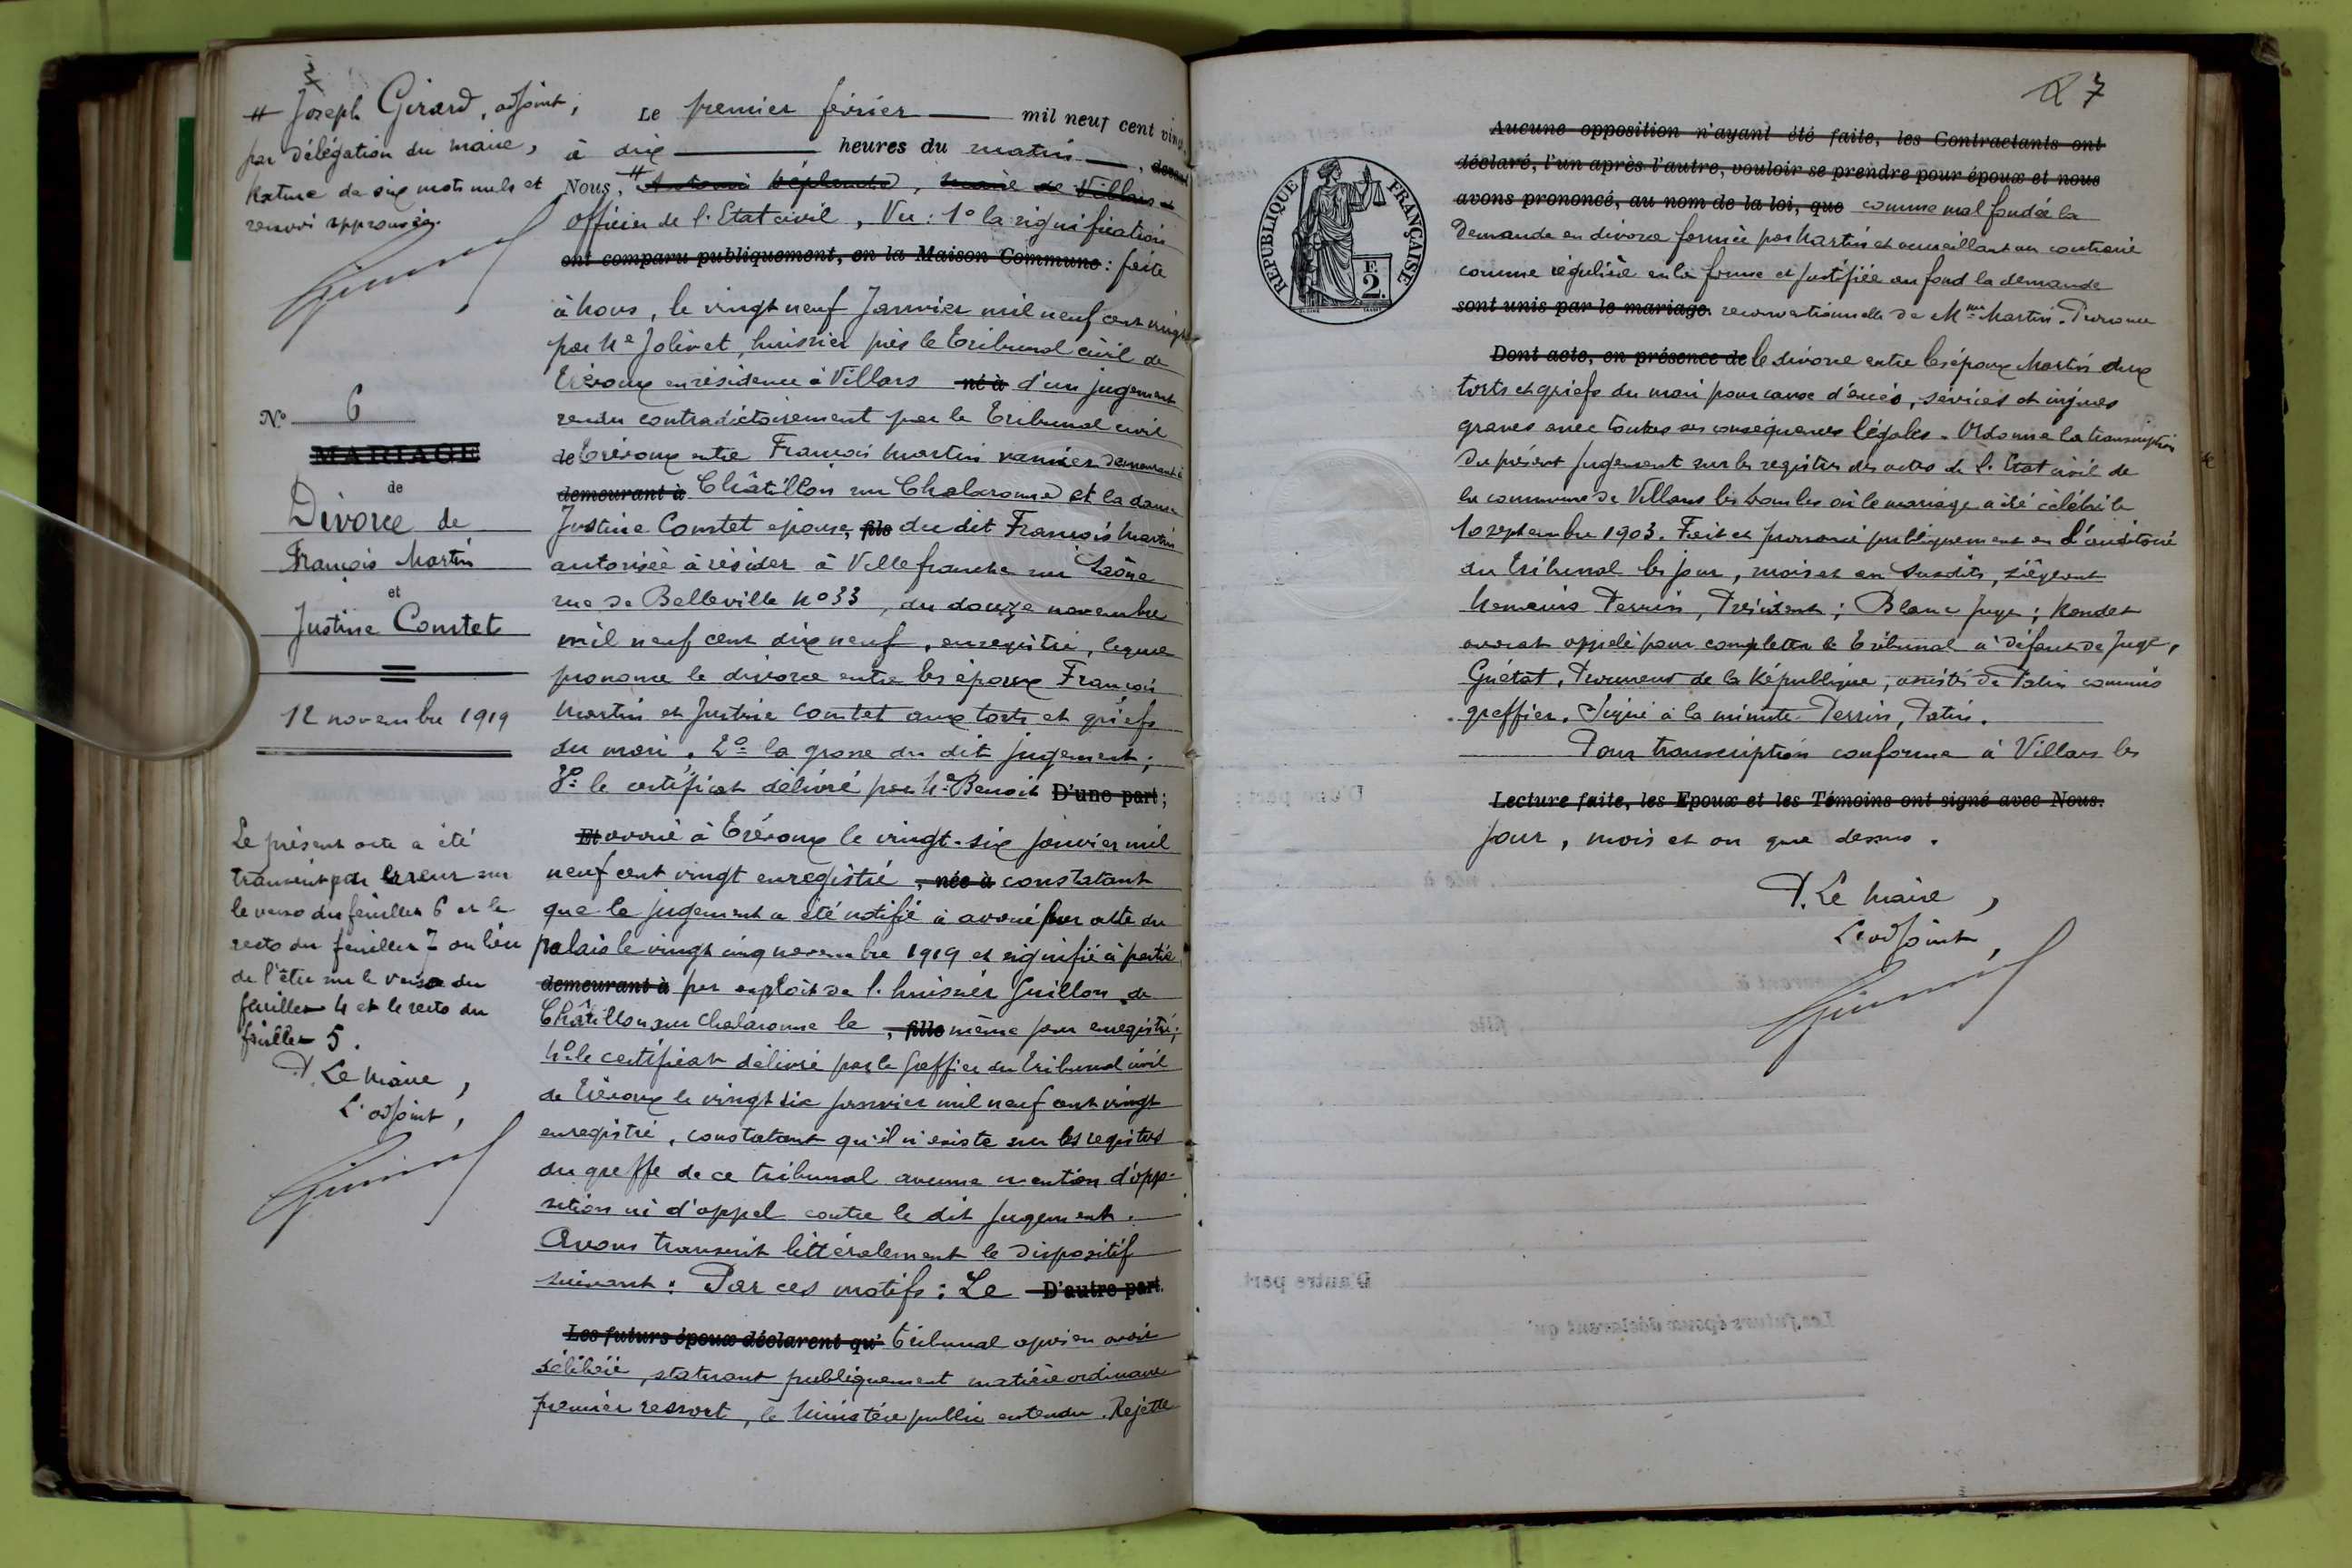 # Joseph Girard, adjoint,
par délégation du maire,
Rature de six mots nuls et
renvoi approuvés.
Girard
No 6
MARIAGE
de
Divorce de
François Martin
et
Justine Comtet
12 novembre 1919
Le présent acte a été
transcrit par erreur sur
le verso du feuillet 6 et le
recto du feuillet 7 au lieu
de l'être sur le verso du
feuillet 4 et le recto du
feuillet 5.
P. Le Maire,
L'adjoint,
Girard
Le premier février mil neuf cent vingt
à dix heures du matin, devant
Nous, # Antonin, maire de Villars
officier de l'Etat civil, Vu : 1o la signification
ont comparu publiquement, en la Maison Commune : faite
à Nous, le vingt neuf Janvier mil neuf cent vingt
par Me Jolivet, huissier près le Tribunal civil de
Trévoux en résidence à Villars né à d'un jugement
rendu contradictoirement par le Tribunal civil
de Trévoux entre François Martin vannier demeurant à
demeurant à Châtillon sur Chalaronne et la dame
Justine Comtet épouse, fils du dit François Martin
autorisée à résider à Villefranche sur Saône
rue de Belleville No 33, du douze novembre
mil neuf cent dix neuf, enregistré, lequel
prononce le divorce entre les époux François
Martin et Justine Comtet aux torts et griefs
du mari, 2o la grosse du dit jugement ;
3o le certificat délivré par Me Benoit D'une part ;
Et avoué à Trévoux le vingt-six janvier mil
neuf cent vingt enregistré, née à constatant
que le jugement a été notifié à avoué par acte du
palais le vingt cinq novembre 1919 et signifié à partie
demeurant à par exploit de l'huissier Guillon de
Châtillon sur Chalaronne le, fille même jour enregistré ;
4o le certificat délivré par le Greffier du Tribunal civil
de Trévoux le vingt six janvier mil neuf cent vingt
enregistré, constatant qu'il n'existe sur les registres
du greffe de ce tribunal aucune mention d'oppo-
sition ni d'appel contre le dit jugement.
Avons transcrit littéralement le dispositif
suivant : Par ces motifs : Le D'autre part.
Les futurs époux déclarent qu' Tribunal après en avoir
délibéré, statuant publiquement matière ordinaire
premier ressort, le Ministère public entendu. Rejette
7
RÉPUBLIQUE FRANÇAISE
2F.
Aucune opposition n'ayant été faite, les Contractants ont
déclaré, l'un après l'autre, vouloir se prendre pour époux et nous
avons prononcé, au nom de la loi, que comme mal fondée la
Demande en divorce formée par Martin et accueillant au contraire
comme régulière en la forme et justifiée au fond la demande
sont unis par le mariage. reconventionnelle de Mme Martin. Prononce
Dont acte, en présence de le divorce entre les époux Martin aux
torts et griefs du mari pour cause d'excès, sévices et injures
graves avec toutes ses conséquences légales. Ordonne la transcription
du présent jugement sur les registres des actes de l'Etat civil de
la commune de Villars les Dombes où le mariage a été célébré le
10 septembre 1903. Fait et prononcé publiquement en l'auditoire
du Tribunal les jour, mois et an susdits, siégeant
Messieurs Perrin, Président ; Blanc Juge ; Rendet
avocat appelé pour compléter le Tribunal à défaut de Juge,
Guétat, Procureur de la République, assistés de Patin commis
greffier. Signé à la minute. Perrin, Patin.
Pour transcription conforme à Villars les
Lecture faite, les Epoux et les Témoins ont signé avec Nous.
jour, mois et an que dessus.
P. Le Maire,
L'adjoint,
Girard